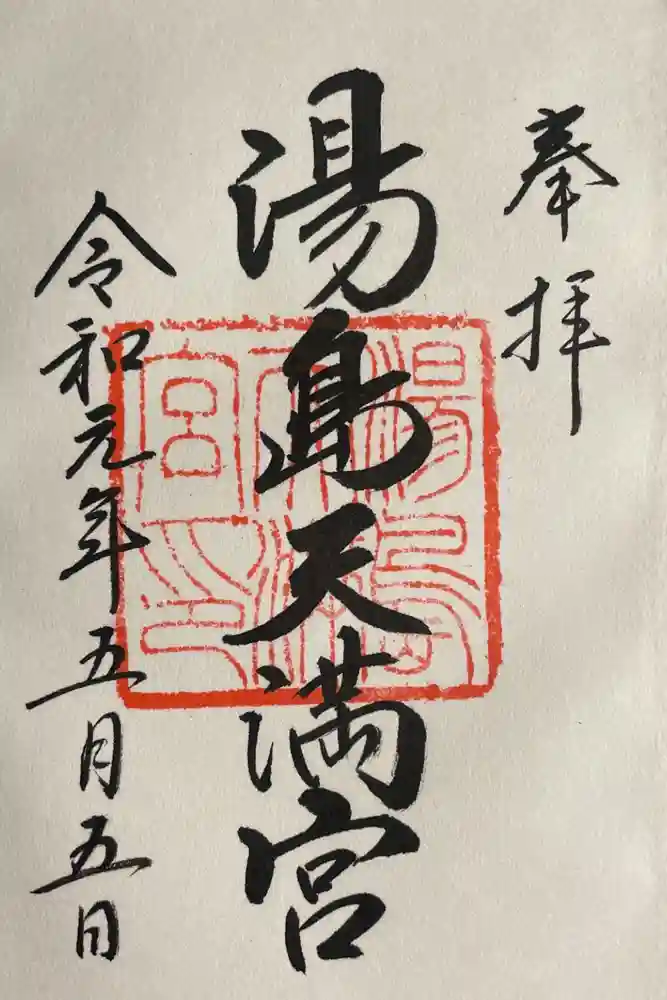 奉拝
湯島天満宮
令和元年五月五日